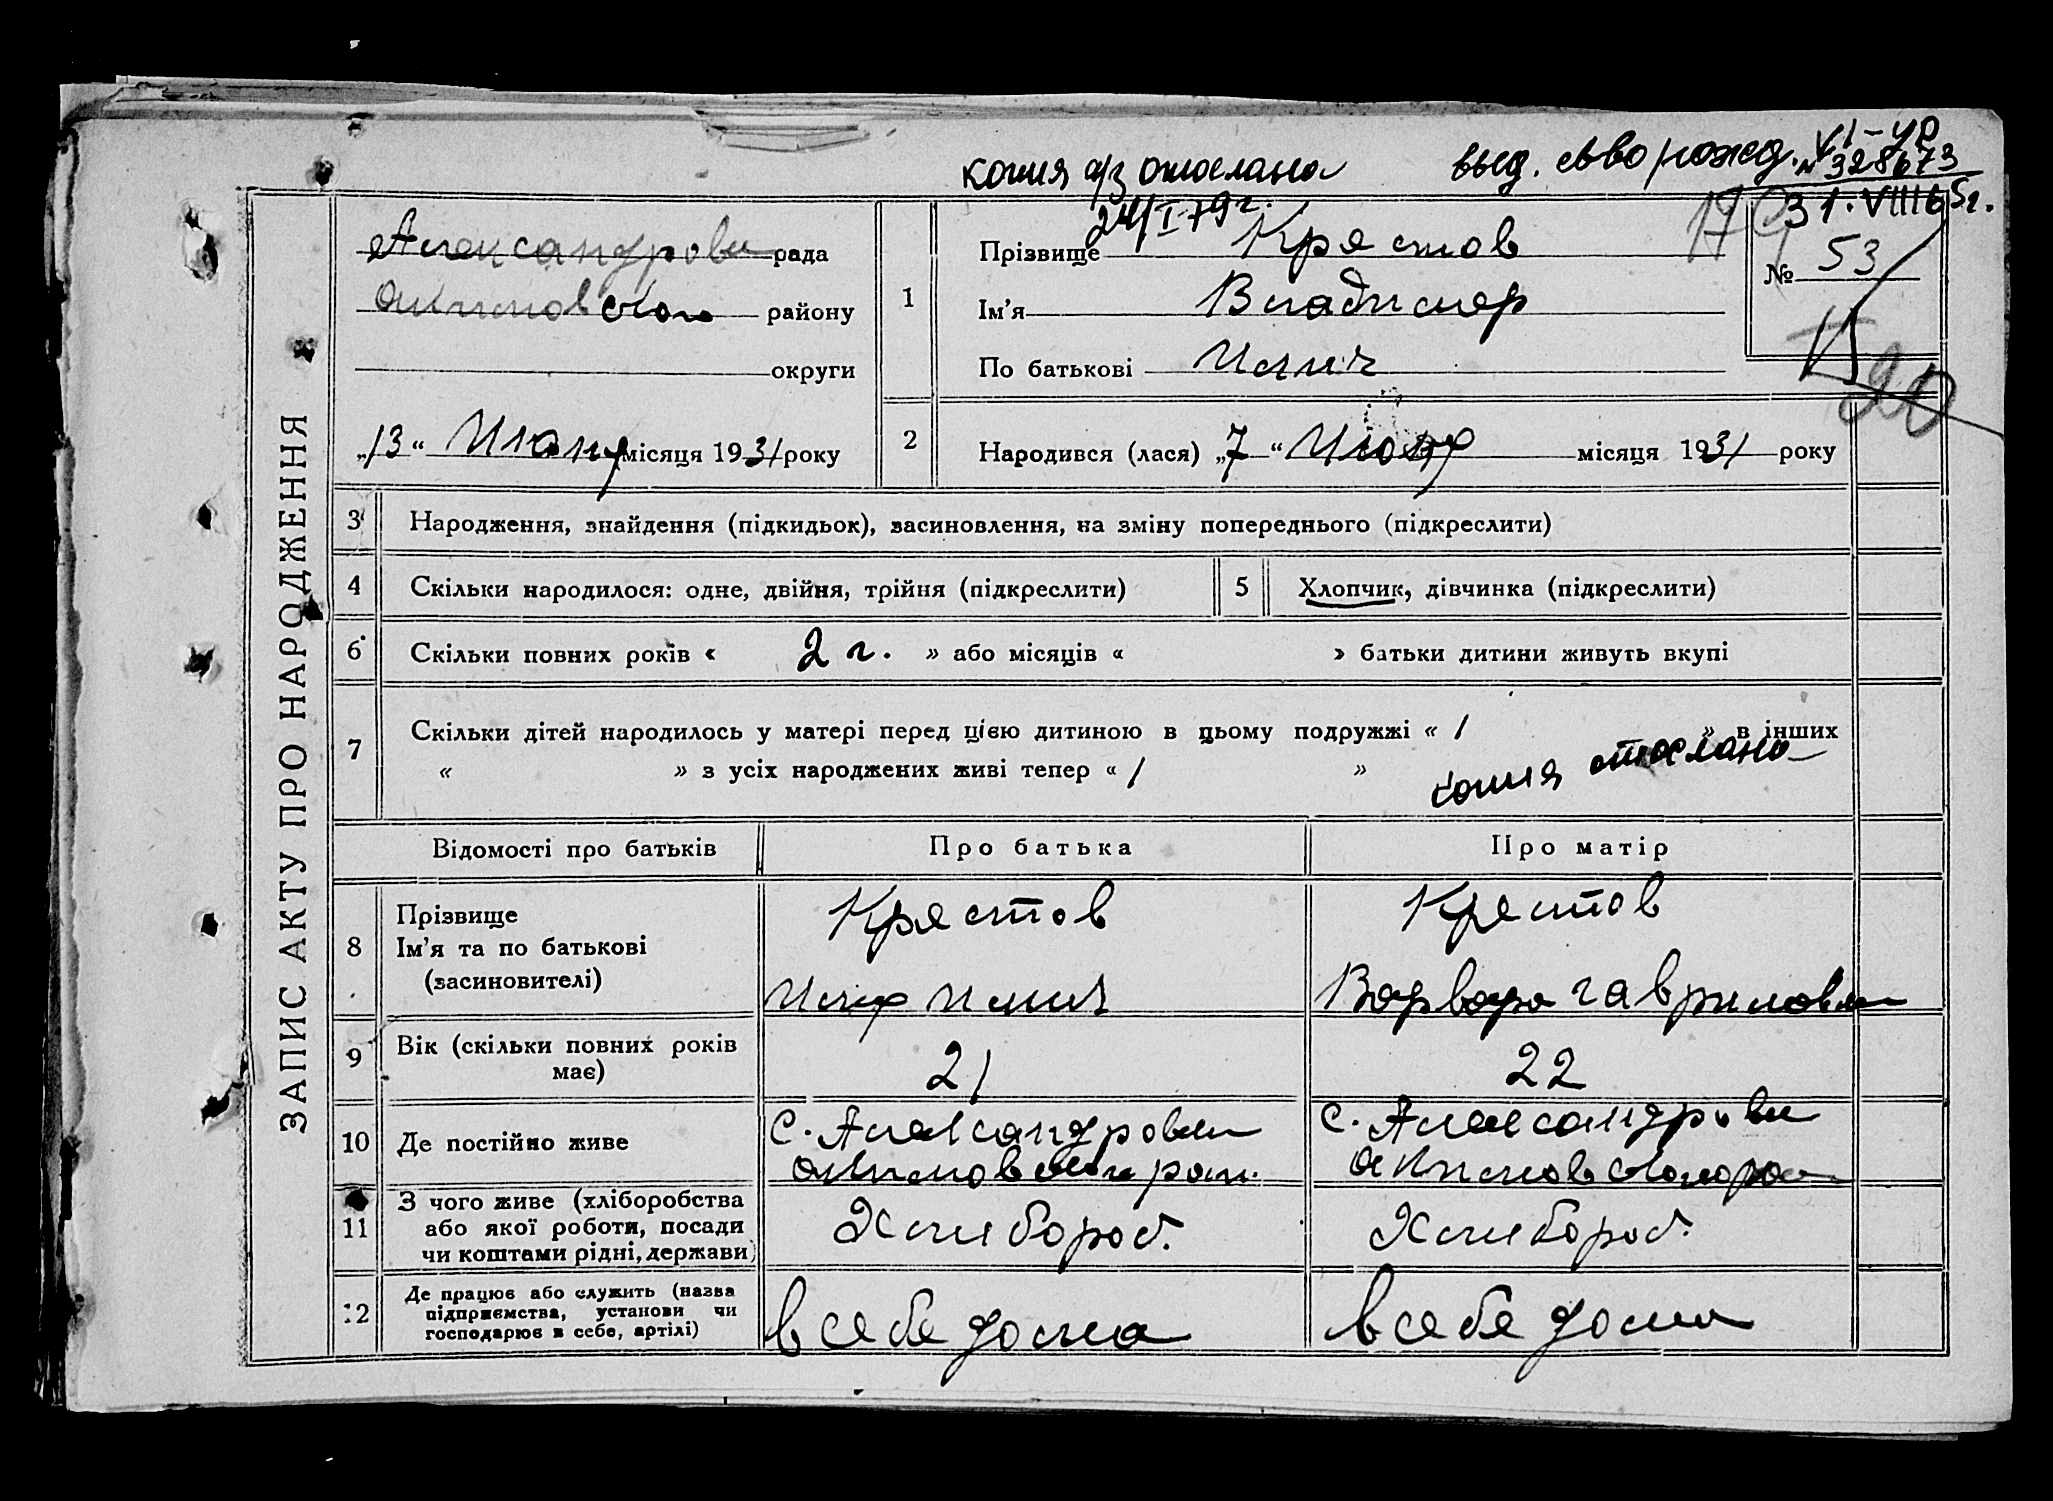 копия а/з отослана
24/I-79г.
выд. св во рожд. VI-УР
№ 328673
31.VIII65г.
ЗАПИС АКТУ ПРО НАРОДЖЕННЯ
Александровк рада
Акимовского району
округи
„13“ Июня місяця 1931 року
1
Прізвище Крястов
Ім’я Владимер
По батькові Илич
№ 53
20
2
Народився (лася) „7“ Июня місяця 1931 року
3 Народження, знайдення (підкидьок), засиновлення, на зміну попереднього (підкреслити)
4 Скільки народилося: одне, двійня, трійня (підкреслити)
5 Хлопчик, дівчинка (підкреслити)
6 Скільки повних років « 2 г. » або місяців « » батьки дитини живуть вкупі
7 Скільки дітей народилось у матері перед цією дитиною в цьому подружжі « 1 » в інших
« » з усіх народжених живі тепер « 1 »
копия отослана
Відомості про батьків
Про батька
Про матір
8
Прізвище
Ім’я та по батькові
(засновителі)
Крястов
Илич
Крестов
Варвара Гавриловн
9
Вік (скільки повних років
має)
21
22
10 Де постійно живе
с. Александровки
Акимовского рай.
с. Александровки
Акимовского ра
11
З чого живе (хліборобства
або якої роботи, посади
чи коштами рідні, держави)
Хлибороб.
Хлибороб.
12
Де працює або служить (назва
підприємства, установи чи
господарює в себе, артілі)
в себе дома
в себе дома